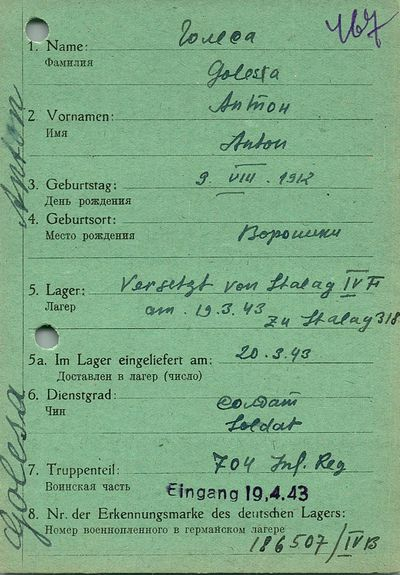 167
1. Name: Голеса
Фамилия
Golessa
2. Vornamen: Антон
Имя
Anton
3. Geburtstag: 9. VIII. 1912
День рождения
4. Geburtsort:
Место рождения
5. Lager: Versetzt von Stalag IV F
Лагер
am. 19.3.43
zu Stalag 318
5a. Im Lager eingeliefert am: 20.3.43
Доставлен в лагер (число)
6. Dienstgrad: солдат
Чин
Soldat
7. Truppenteil: 704 Inf. Reg
Воинская часть
Eingang 19.4.43
8. Nr. der Erkennungsmarke des deutschen Lagers:
Номер военнопленного в германском лагере
186507/IVB
Golesa Anton